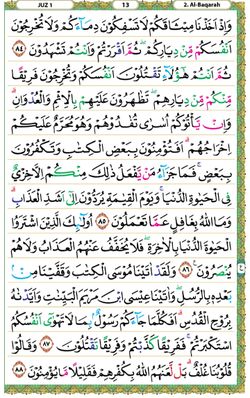 JUZ 1 13 2. Al-Baqarah
وَاِذْ اَخَذْنَا مِيْثَاقَكُمْ لَا تَسْفِكُوْنَ دِمَآءَكُمْ وَلَا تُخْرِجُوْنَ
اَنْفُسَكُمْ مِّنْ دِيَارِكُمْ ثُمَّ اَقْرَرْتُمْ وَاَنْتُمْ تَشْهَدُوْنَ ﴿٨٤﴾
ثُمَّ اَنْتُمْ هٰٓؤُلَآءِ تَقْتُلُوْنَ اَنْفُسَكُمْ وَتُخْرِجُوْنَ فَرِيْقًا
مِّنْكُمْ مِّنْ دِيَارِهِمْ تَظٰهَرُوْنَ عَلَيْهِمْ بِالْاِثْمِ وَالْعُدْوَانِ
وَاِنْ يَّاْتُوْكُمْ اُسٰرٰى تُفٰدُوْهُمْ وَهُوَ مُحَرَّمٌ عَلَيْكُمْ
اِخْرَاجُهُمْ اَفَتُؤْمِنُوْنَ بِبَعْضِ الْكِتٰبِ وَتَكْفُرُوْنَ
بِبَعْضٍ فَمَا جَزَآءُ مَنْ يَّفْعَلُ ذٰلِكَ مِنْكُمْ اِلَّا خِزْيٌ
فِى الْحَيٰوةِ الدُّنْيَا وَيَوْمَ الْقِيٰمَةِ يُرَدُّوْنَ اِلٰٓى اَشَدِّ الْعَذَابِ
وَمَا اللّٰهُ بِغَافِلٍ عَمَّا تَعْمَلُوْنَ ﴿٨٥﴾ اُولٰٓئِكَ الَّذِيْنَ اشْتَرَوُا
الْحَيٰوةَ الدُّنْيَا بِالْاٰخِرَةِ فَلَا يُخَفَّفُ عَنْهُمُ الْعَذَابُ وَلَا هُمْ
يُنْصَرُوْنَ ﴿٨٦﴾ وَلَقَدْ اٰتَيْنَا مُوْسَى الْكِتٰبَ وَقَفَّيْنَا مِنْۢ
بَعْدِهٖ بِالرُّسُلِ وَاٰتَيْنَا عِيْسَى ابْنَ مَرْيَمَ الْبَيِّنٰتِ وَاَيَّدْنٰهُ
بِرُوْحِ الْقُدُسِ اَفَكُلَّمَا جَآءَكُمْ رَسُوْلٌۢ بِمَا لَا تَهْوٰٓى اَنْفُسُكُمُ
اسْتَكْبَرْتُمْ فَفَرِيْقًا كَذَّبْتُمْ وَفَرِيْقًا تَقْتُلُوْنَ ﴿٨٧﴾ وَقَالُوْا
قُلُوْبُنَا غُلْفٌ بَلْ لَّعَنَهُمُ اللّٰهُ بِكُفْرِهِمْ فَقَلِيْلًا مَّا يُؤْمِنُوْنَ ﴿٨٨﴾